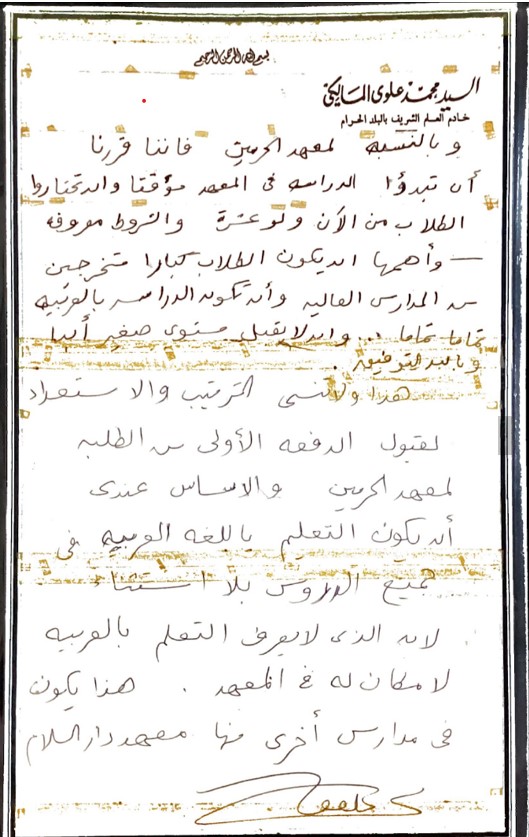 بسم الله الرحمن الرحيم
السيد محمد علوي المالكي
خادم العلم الشريف بالبلد الحرام
وبالنسبه لمعهد الحرمين فاننا قررنا
أن تبدؤا الدراسه في المعهد مؤقتا وان تختاروا
الطلاب من الآن ولو عشرة والشروط معروفه
— وأهمها ان يكون الطلاب كبارا متخرجين
من المدارس العاليه وأن تكون الدراسه بالعربيه
تماما تماما ... وان لا يقبل مستوى صغير أبدا
وبالله التوفيق .
هذا ولا ننسى الترتيب والاستعداد
لقبول الدفعه الأولى من الطلبه
لمعهد الحرمين والاساس عندى
أن يكون التعلم باللغه العربيه فى
جميع الدروس بلا استثناء
لان الذى لا يعرف التعلم بالعربيه
لا مكان له فى المعهد . هذا يكون
فى مدارس أخرى منها معهد دار السلام